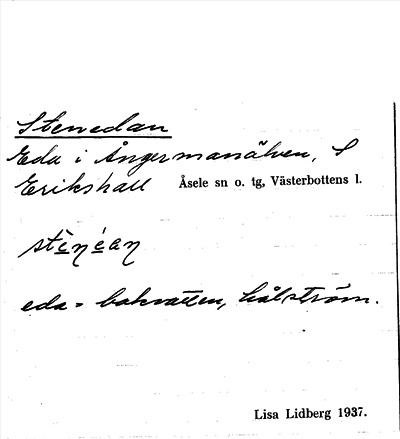 Stenedan
Eda i Ångermanälven, S
Erikshall Åsele sn o. tg, Västerbottens l.
stèṇéan
eda = bakvatten, hålström.
Lisa Lidberg 1937.